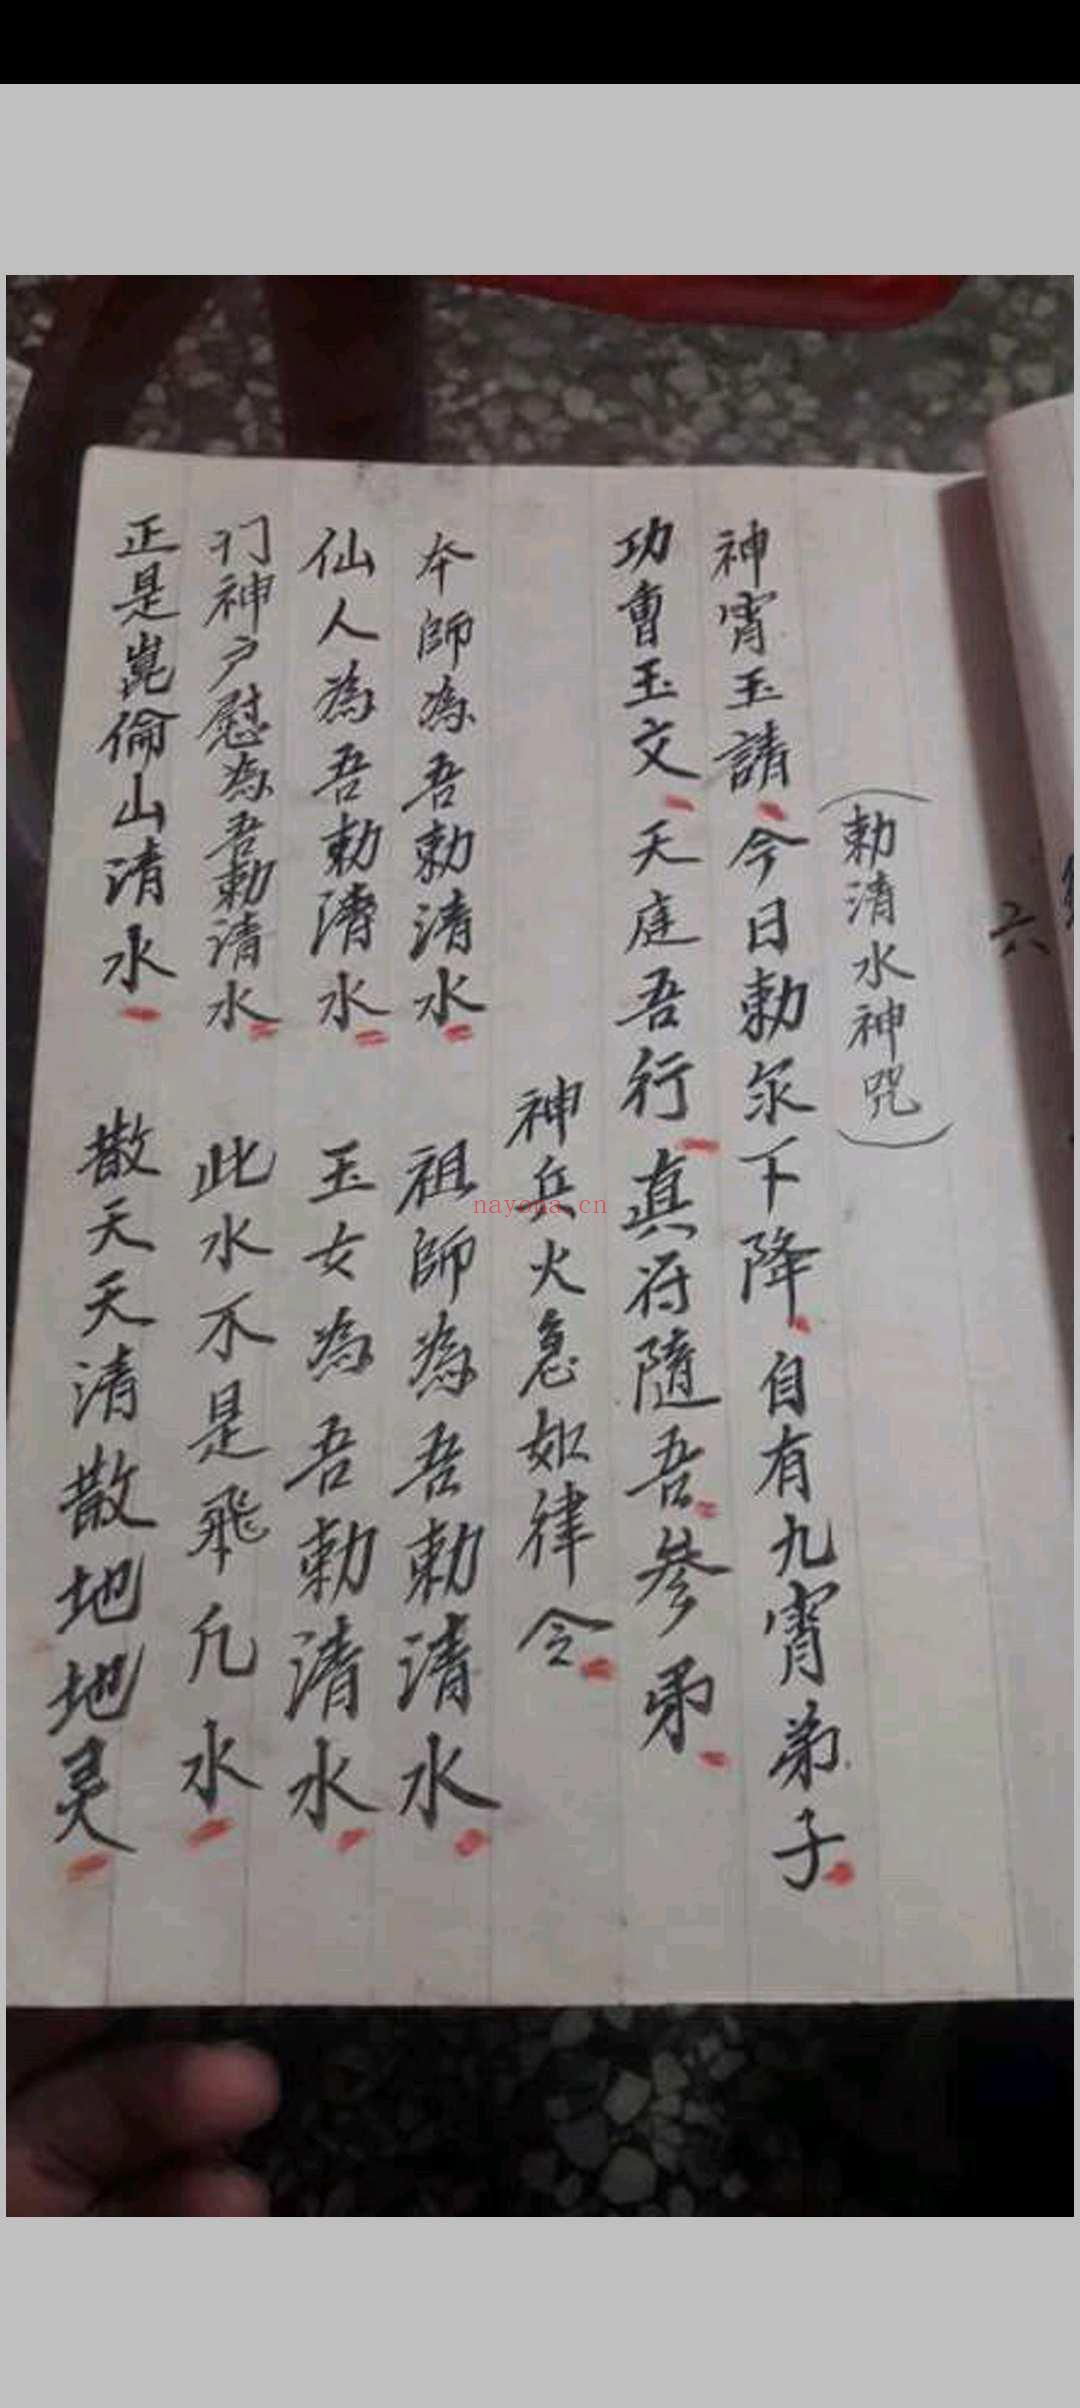 （勅清水神咒）
神霄玉請今日勅尔下降自有九霄弟子
功曹玉文天庭吾行真符隨吾參弟
神兵火急如律令
本師為吾勅清水 祖師為吾勅清水
仙人為吾勅清水 玉女為吾勅清水
门神户慰為吾勅清水 此水不是飛凡水
正是崑倫山清水 散天天清散地地灵
六
nayona.cn